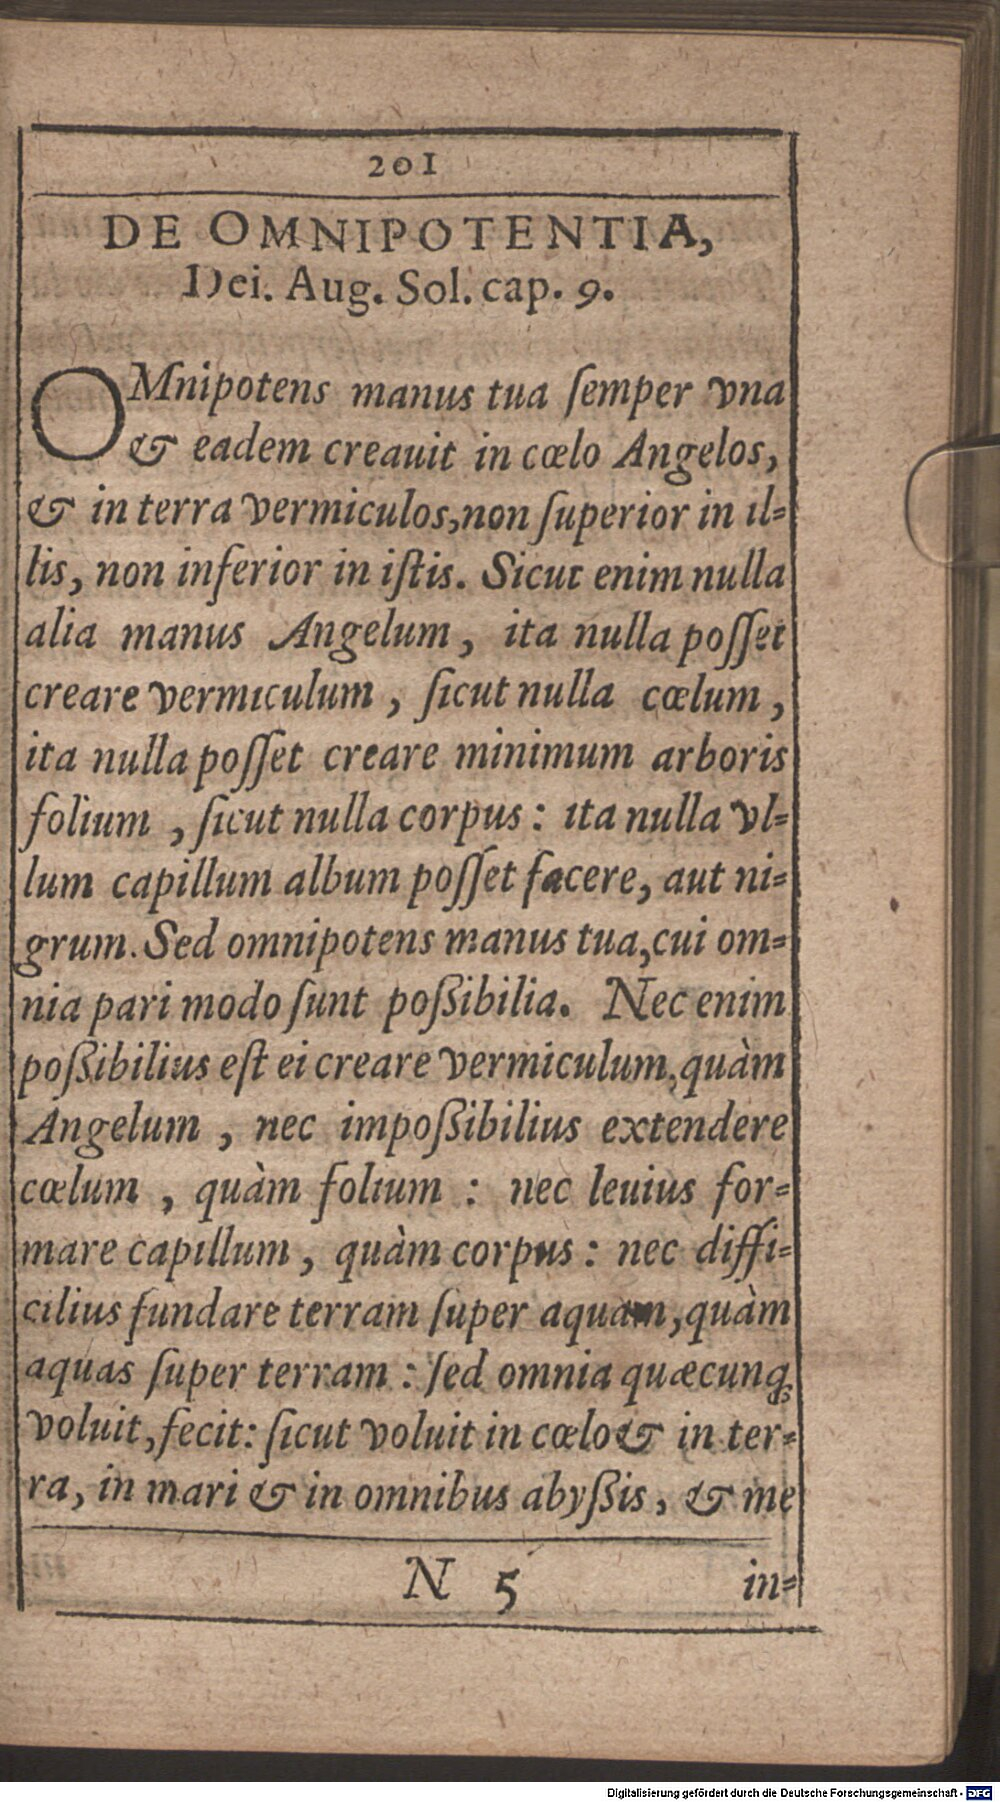 201
DE OMNIPOTENTIA,
Dei. Aug. Sol. cap. 9.
OMnipotens manus tua ſemper vna
& eadem creauit in cœlo Angelos,
& in terra vermiculos, non ſuperior in il-
lis, non inferior in iſtis. Sicut enim nulla
alia manus Angelum, ita nulla poſſet
creare vermiculum, ſicut nulla cœlum,
ita nulla poſſet creare minimum arboris
folium, ſicut nulla corpus: ita nulla vl-
lum capillum album poſſet facere, aut ni-
grum. Sed omnipotens manus tua, cui om-
nia pari modo ſunt poßibilia. Nec enim
poßibilius eſt ei creare vermiculum, quàm
Angelum, nec impoßibilius extendere
cœlum, quàm folium: nec leuius for-
mare capillum, quàm corpus: nec diffi-
cilius fundare terram ſuper aquam, quàm
aquas ſuper terram: ſed omnia quæcunq́;
voluit, fecit: ſicut voluit in cœlo & in ter-
ra, in mari & in omnibus abyßis, & me
N 5 in-
Digitalisierung gefördert durch die Deutsche Forschungsgemeinschaft - DFG